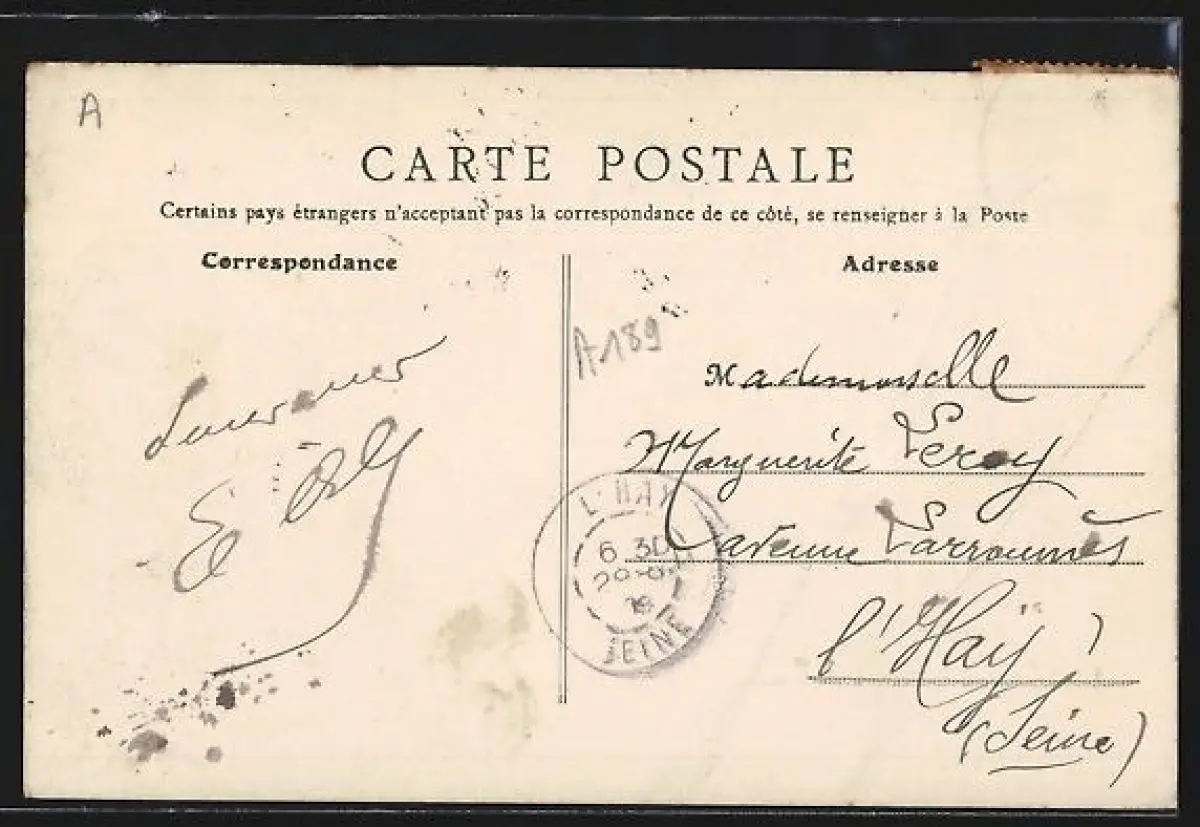 A
CARTE POSTALE
Certains pays étrangers n'acceptant pas la correspondance de ce côté, se renseigner à la Poste
Correspondance
Adresse
A189
Mademoiselle
Marguerite Leroy
avenue Larroumès
l'Haÿ
(Seine)
L'HAY
6 30
SEINE